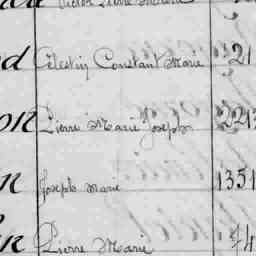 Victor Pierre
d Célestin Constant Marie 21
on Pierre Marie Joseph 2213
n Joseph Marie 1351
n Pierre Marie 74